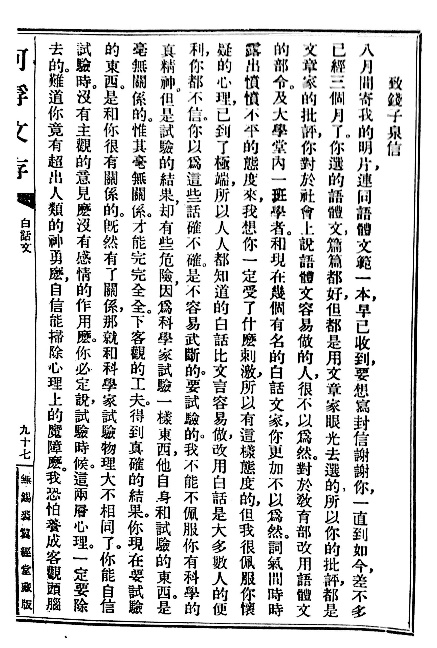 致錢子泉信
八月間寄我的明片，連同語體文範一本，早已收到，要想寫封信謝謝你，一直到如今，差不多
已經三個月了。你選的語體文，篇篇都好，但都是用文章家眼光去選的，所以你的批評，都是
文章家的批評。你對於社會上說語體文容易做的人，很不以爲然。對於敎育部改用語體文
的部令，及大學堂內一班學者，和現在幾個有名的白話文家，你更加不以爲然。詞氣間時時
露出憤憤不平的態度來，我想你一定受了什麽刺激，所以有這樣態度的。但我很佩服你懷
疑的心理，已到了極端，所以人人都知道的白話比文言容易做，改用白話是大多數人的便
利，你都不信。你以爲這些話確不確，是不容易武斷的，要試驗的。我不能不佩服你有科學的
真精神。但是試驗的結果，却有些危險，因爲科學家試驗一樣東西，他自身和試驗的東西，是
毫無關係的。惟其毫無關係，才能完完全全下客觀的工夫，得到真確的結果。你現在要試驗
的東西，是和你很有關係的。旣然有了關係，那就和科學家試驗物理大不相同了。你能自信
試驗時沒有主觀的意見麽，沒有感情的作用麽。你必定說試驗時候，這兩層心理，一定要除
去的。難道你竟有超出人類的神勇麽，自信能掃除心理上的魔障麽。我恐怕養成客觀頭腦
可桴文存
白話文
九十七
無錫裘翼經堂藏版